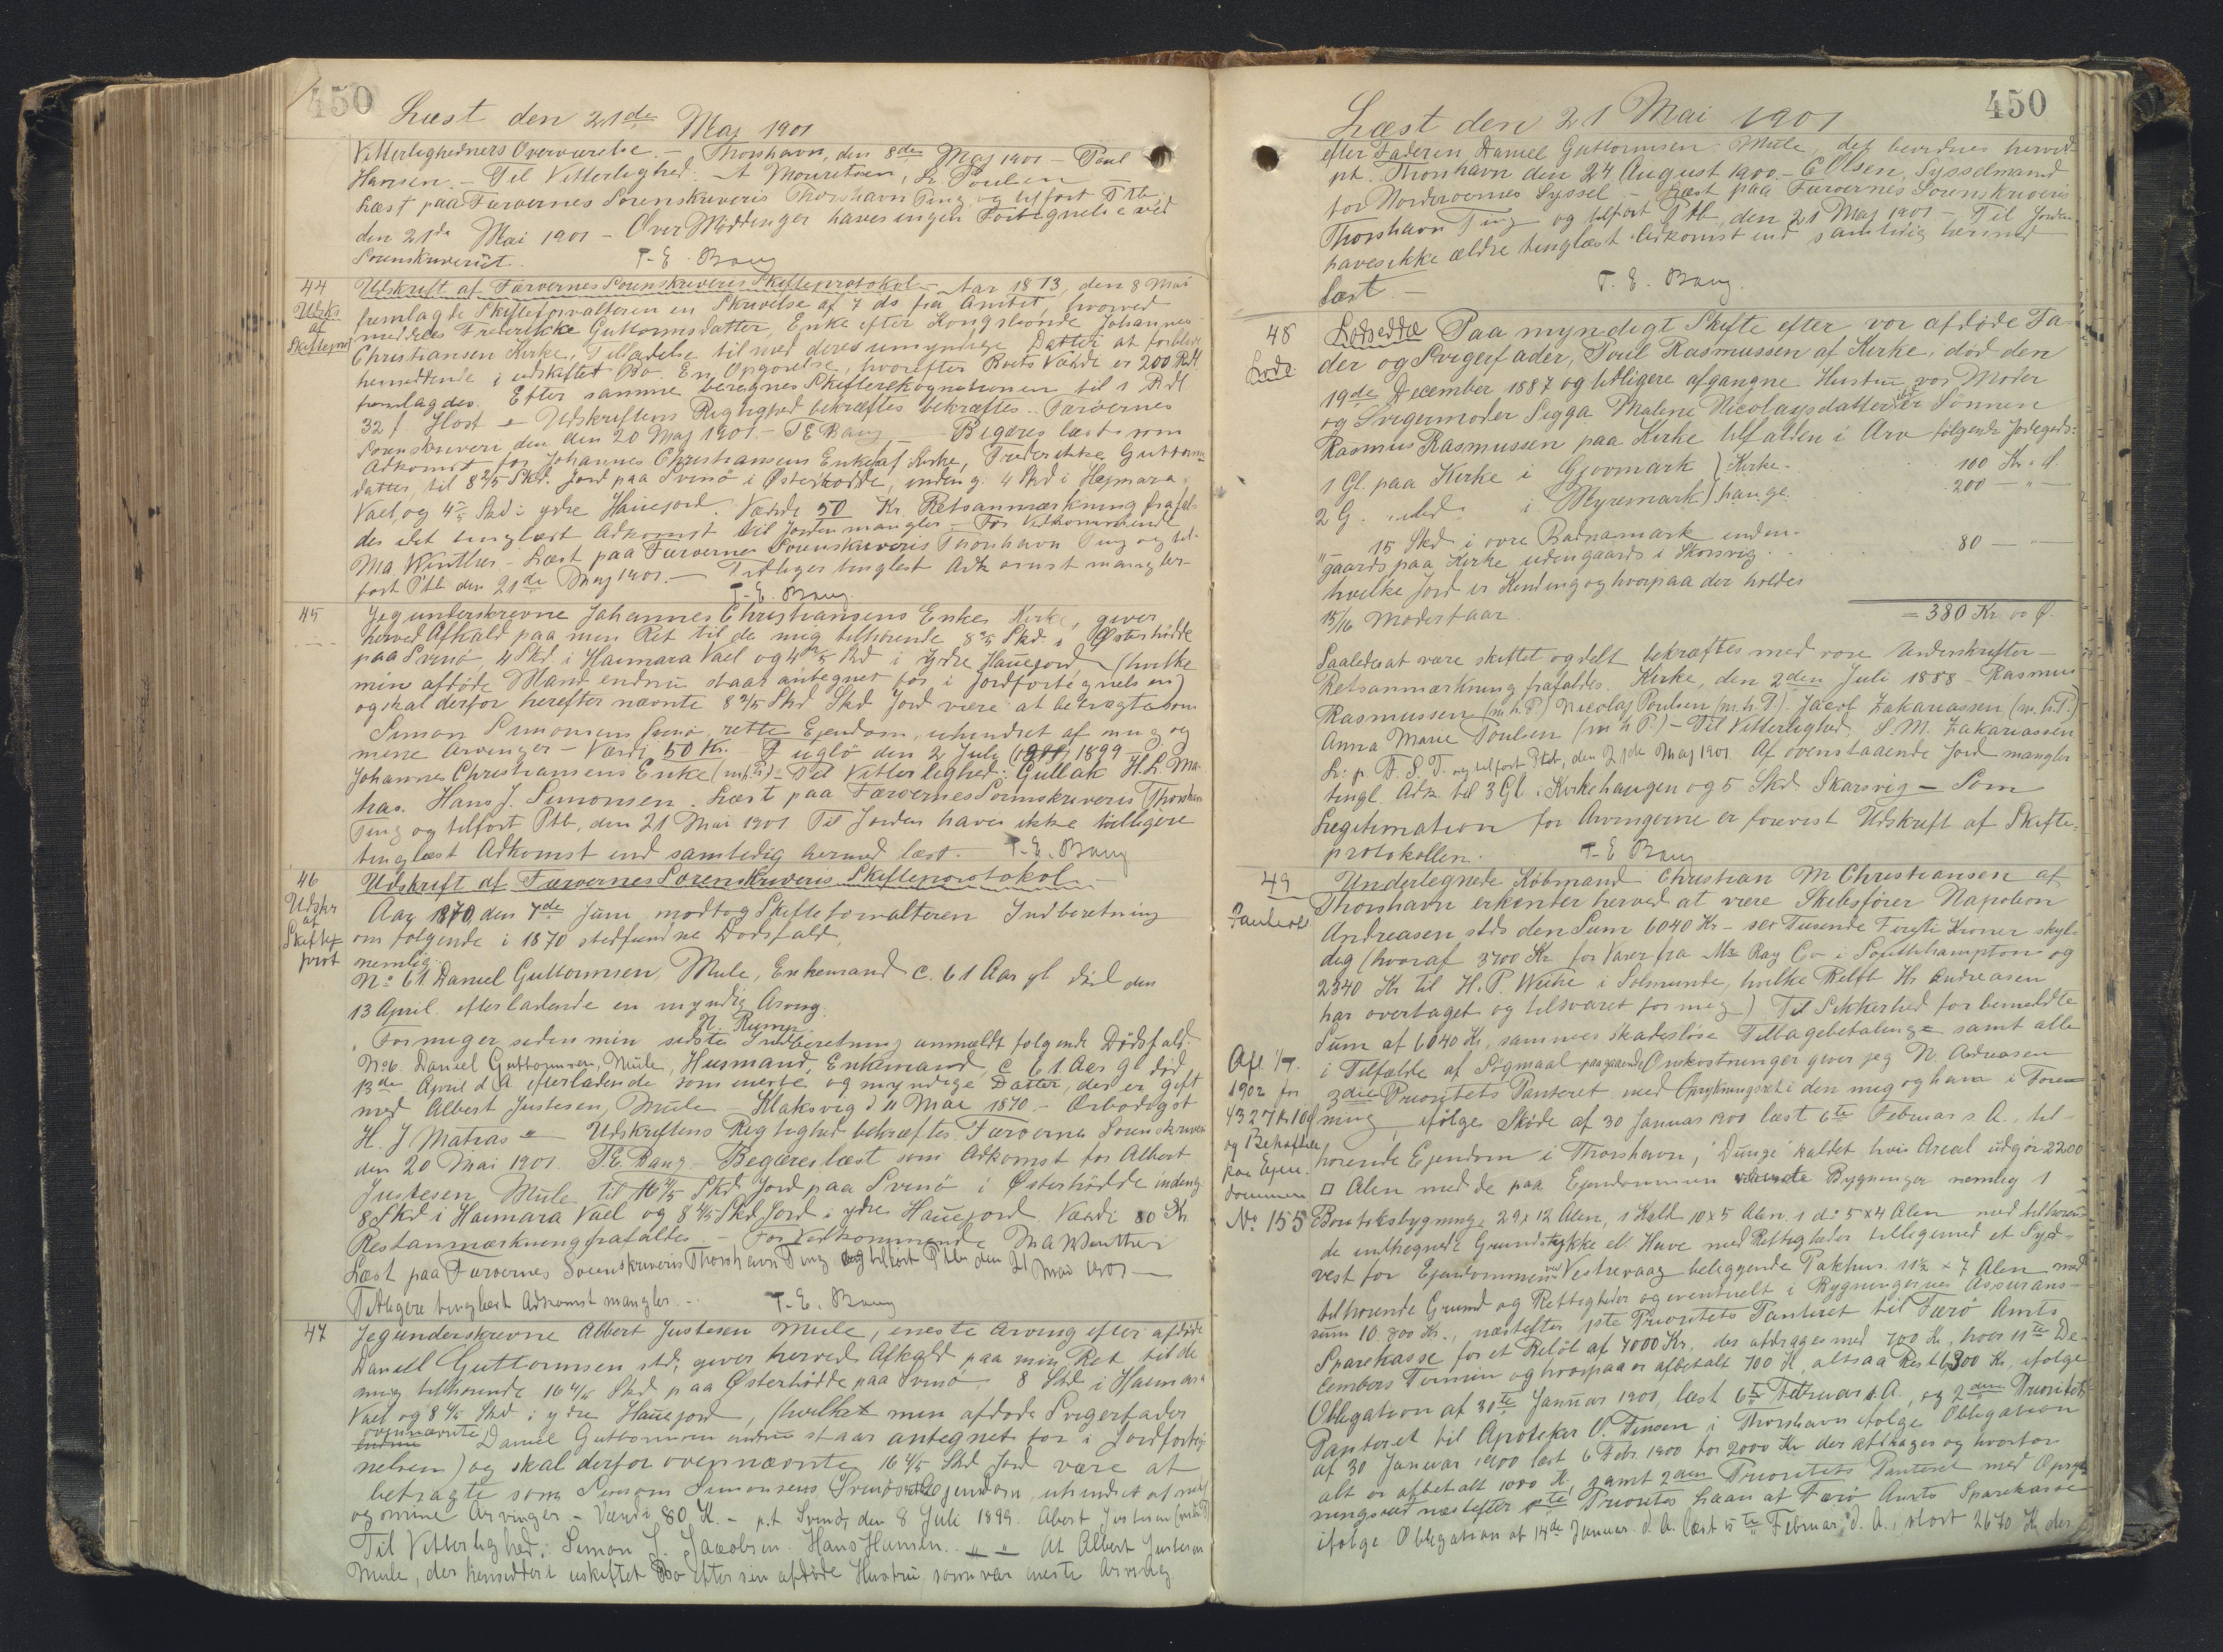 450
Læst den 21de Maj 1901
Vitterlighedners Overværelse. - Thorshavn, den 8de Maj 1901 - Poul
Hansen. - Til Vitterlighed: A Mouretsen, Poulsen
Læst paa Færøernes Sorenskriveris Thorshavn Ting og tilført Ptb,
den 21de Mai 1901 - Over Møddinger haves ingen Fortegnelse ved
Sorenskriveriet. T. E. Bang
44 Udskrift af Færøernes Sorenskriveris Skifteprotokol - Aar 1873, den 8 Mai
Udskr fremlagde Skifteforvalteren en Skrivelse af 7 ds fra Amtet, hvorved
af meddeles Frederikke Guttormsdatter, Enke efter Kongsbonde Johannes
Skiftepr Christiansen Kirke, Tilladelse til med deres umyndige Datter at forblive
hensiddende i uskiftet Bo. En Opgørelse, hvorefter Boets Værdi er 200 Rdl
fremlagdes. Efter samme beregnes Skifterekognitionen til 1 Rdl
32 /. Host - Udskriftens Rigtighed bekræftes bekræftes. Færøernes
Sorenskriveri den den 20 Maj 1901. T E Bang - Begæres læst som
Adkomst for Johannes Christiansens Enke af Kirke, Frederikke Guttorms
datter, til 8 2/5 Skd. Jord paa Svinö i Østerhødde, indeng. 4 Skd i Hejmara
Vael, og 4 2/5 Skd i ydre Hauejord. Værdi 50 Kr. Retsanmærkning frafal
des det tinglæst Adkomst til Jorden mangler - For Vedkommende
M.A. Winther - Læst paa Færøernes Sorenskriveris Thorshavn Ting og til-
ført Ptb den 21de Maj 1901. - Tidligere tinglæst Adkomst mangler-
T. E. Bang
45 Jeg underskrevne Johannes Christiansens Enke, Kirke, giver
herved Afkald paa min Ret til de mig tilhørende 8 2/5 Skd. i Østerhødde
paa Svinö, 4 Skd. i Haimara Vael og 4 2/5 Skd i Ydre Hauejord (hvilke
min afdøde Mand endnu staar antegnet for i Jordfortegnelsen)
og skal derfor herefter nævnte 8 2/5 Skd Skd Jord være at betragte som
Simon Simonsens Svinø, rette Ejendom, uhindret af mig og
mine Arvinger - Værdi 50 Kr. - Fuglö den 2 July 1899
Johannes Christiansens Enke (m.h.P.) - Til Vitterlighed: Gullak H.L. Ma-
has. Hans J. Simonsen. Læst paa Færøernes Sorenskriveris Thorshavn
Ting og tilført Ptb, den 21 Mai 1901. Til Jorden haves ikke tidligere
tinglæst Adkomst end samtidig hermed læst. T. E. Bang
46 Udskrift af Færøernes Sorenskriveris Skifteprotokol
Udskr Aar 1870, den 7de Juni modtog Skifteforvalteren Indberetning
af om følgende i 1870 stedfundne Dødsfald,
Skifte
prot nemlig:
No 61 Daniel Guttormsen, Mule, Enkemand c. 61 Aar gl. død den
13 April. efterladende en myndig Arving.
H. Rump.
Formeger siden min sidste Indberetning anmeldt følgende Dødsfald:
No 6. Daniel Guttormsen, Mule, Husmand, Enkemand, c 61 Aar gl død
13de April d. A. efterladende som eneste og myndige Datter, der er gift
med Albert Justesen, Mule Klaksvig d 11 Mai 1870 - Ærbødigst
H. J Matras - Udskriftens Rigtighed bekræftes Færøernes Sorenskriveri
den 20 Mai 1901. T.E. Bang - Begæres læst som Adkomst for Albert
Justesen, Mule, til 16 4/5 Skd. Jord paa Svinö i Østerhødde indeng.
8 Skd i Haimara Vael og 8 4/5 Skd Jord i ydre Hauejord. Værdi 80 Kr.
Retsanmærkning frafaldes. - For Vedkommende M A Winther
Læst paa Færøernes Sorenskriveris Thorshavn Ting og tilført Ptb den 21 Mai 1901 -
Tidligere tinglæst Adkomst mangler. - T. E. Bang
47 Jeg underskrevne Albert Justesen Mule, eneste Arving efter afdøde
Daniel Guttormsen stds, giver herved Afkald paa min Ret til de
mig tilhørende 16 4/5 Skd paa Østerhødde paa Svinö, 8 Skd i Haimara
Vael og 8 4/5 Skd i ydre Hauejord, (hvilket min afdøde Svigerfader
ovennævnte Daniel Guttormsen endnu staar antegnet for i Jordforteg-
nelsen) og skal derfor ovennævnte 16 4/5 Skd Jord være at
betragte som Simon Simonsens, Svinø Ejendom, uhindret af mig
og mine Arvinger. - Værdi 80 K. - p.t Svinø, den 8 Juli 1899. Albert Justesen (m.h.P.)
Til Vitterlighed: Simon J. Jacobsen. Hans Hansen. At Albert Justesen
Mule, der hensidder i uskiftet Bo efter sin afdøde Hustru, som var eneste Arving
450
Læst den 21 Mai 1901
efter Faderen Daniel Guttormsen Mule, det bevidnes herved
pt. Thorshavn den 24 August 1900. - C Olsen, Sysselmand
for Norderøernes Syssel - Læst paa Færøernes Sorenskriveris
Thorshavn Ting og tilført Ptb, den 21 Maj 1901 - Til Jorden
haves ikke ældre tinglæst Adkomst end samtidig hermed
læst. - T. E. Bang.
48 Lodseddel Paa myndigt Skifte efter vor afdøde Fa-
Lods der og Svigerfader, Poul Rasmussen af Kirke, død den
19de December 1887 og tidligere afgangne Hustru, vor Moder
og Svigermoder Sigga Malene Nicolaysdatter er Sönnen
Rasmus Rasmussen paa Kirke tilfalden i Arv følgende Jordegods:
1 Gl. paa Kirke i Gjovmark } Kirke- 100 Kr. " Ø.
2 G. " i Myremark } hauge. 200 - " -
" 15 Skd i øvre Badnamark inden-
gaards paa Kirke udengaards i Skarsvig. 80 - -
hvilke Jord er Kending og hvorpaa der holdes
15/16 Moderfaar = 380 Kr. 00 Ø.
Saaledes at være skiftet og delt bekræftes med vore Underskrifter -
Retsanmærkning frafaldes. Kirke, den 2den Juli 1888 - Rasmus
Rasmussen (m.h.P) Nicolaj Poulsen (m.h.P). Jacob Zakariassen (m.h.P.)
Anna Marie Poulsen (m h P) - Til Vitterlighed: S. M. Zakariassen
L: p. F. S. T. og tilført Ptb, den 21de Maj 1901. Af ovenstaaende Jord mangler
tingl. Adk. til 3 Gl. i Kirkehaugen og 5 Skd. Skarsvig - Som
Legitimation for Arvingerne er forevist Udskrift af Skifte-
protokollen. T. E. Bang
49 Undertegnede Købmand Christian M Christiansen af
Panteobl Thorshavn erkender herved at være Skibsfører Napoleon
Andreasen stds den Sum 6040 Kr - sex Tusende Fyrreti Kroner skyl-
dig (hvoraf 3700 Kr. for Varer fra Mr Ray Co i Southhampton og
2340 Kr til H. P. Wiike i Solmunde, hvilke Beløb Hr Andreasen
har overtaget og tilsvaret for mig) Til Sikkerhed for bemeldte
Sum af 6040 Kr, sammes skadesløse Tilbagebetaling samt alle
i Tilfælde af Sögmaal paagaaende Omkostninger giver jeg N. Andreasen
Afl. 1/7. 3die Prioritets Panteret med Oprykningsret i den mig og hava i Foren
1902 for
4327 Kr 10 Ø ning, ifølge Skøde af 30 Januar 1900 læst 6te Februar s. A., til-
og Behæftelse hørende Ejendom i Thorshavn, "Dunge" kaldet hvis Areal udgør 2200
paa Ejen-
dommen □ Alen med de paa Ejendommen værende Bygninger nemlig 1
No. 155 Boutiksbygning 29 x 12 Alen, 1 Hald 10 x 5 Alen. 1 do 5 x 4 Alen med tilhøren-
de indhegnede Grundstykke el Have med Rettigheder tilligemed et Syd-
vest for Ejendommen ved Vestrevaag beliggende Pakhus 11½ x 7 Alen med
tilhørende Grund og Rettigheder og eventuelt i Bygningernes Assurans-
sum 10.800 Kr., næstefter 1ste Prioritets Panteret til Færö Amts
Sparekasse for et Beløb af 7000 Kr, der afdrages med 700 Kr. hver 11te De-
cembers Termin og hvorpaa er afbetalt 700 K, altsaa Rest 6300 Kr, ifølge
Obligation af 30te Januar 1901, læst 6te Februar s.A., og 2den Prioritets
Panteret til Apoteker O. Finsen i Thorshavn ifølge Obligation
af 30 Januar 1900 læst 6 Febr. 1900 for 2000 Kr der afdrages og hvorfor
alt er afbetalt 1000 K., samt 2den Prioritets Panteret med Opryk
ningsret næstefter 1ste Prioritets Laan af Færö Amts Sparekasse
ifølge Obligation af 14de Januar d. A. læst 5te Februar d. A., stort 2670 Kr der